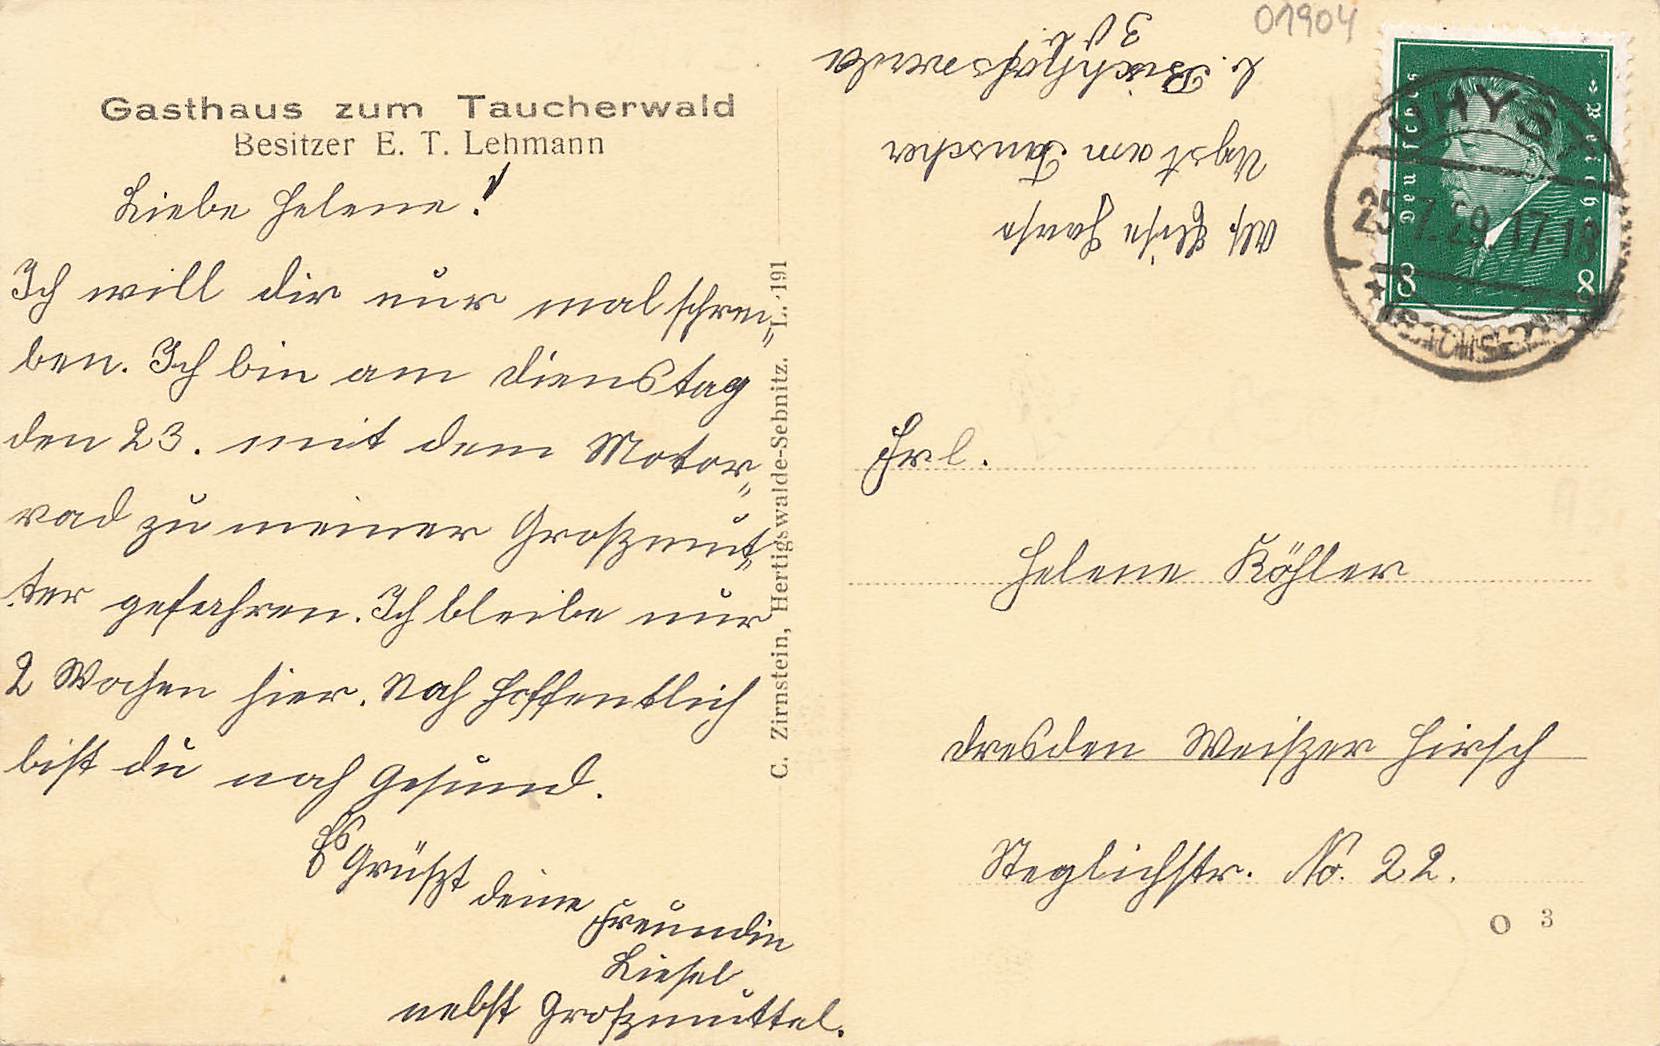 Gasthaus zum Taucherwald
Besitzer E. T. Lehmann
Liebe Helene!
Ich will dir nur mal schrei„
ben. Ich bin am Dienstag
den 23. mit dem Motor„
rad zu meiner Großmut„
ter gefahren. Ich bleibe nur
2 Wochen hier. Noch hoffentlich
bist du noch Gesund.
Es Grüßt deine
Freundin
Liesel
nebst Großmuttel.
C. Zirnstein, Hertigswalde-Sebnitz. L. 191
01904
Abs. Liesa
Uyst am Tauscher
b. Bischhofswerda
Deutsches Reich
8 8
UHYST
25.7.29.17-18
Frl.
Helene Köhler
Dresden Weißer Hirsch
Steglichstr. No. 22.
O 3